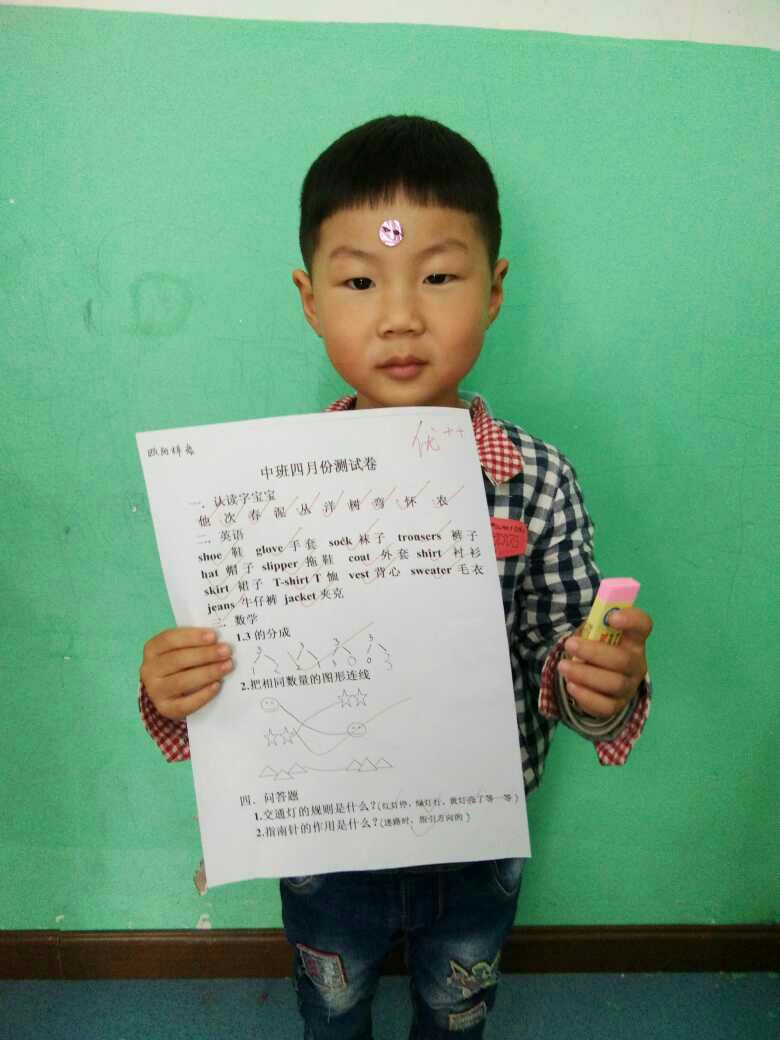 优++
中班四月份测试卷
一. 认读字宝宝
他 次 春 泥 丛 洋 树 弯 怀 农
二. 英语
shoe 鞋 glove 手套 sock 袜子 tronsers 裤子
hat 帽子 slipper 拖鞋 coat 外套 shirt 衬衫
skirt 裙子 T-shirt T 恤 vest 背心 sweater 毛衣
jeans 牛仔裤 jacket 夹克
三. 数学
1.3 的分成
3 3 3
1 2 1 0 0 3
2.把相同数量的图形连线
四. 问答题
1.交通灯的规则是什么?(红灯停，绿灯行，黄灯亮了等一等)
2.指南针的作用是什么?(迷路时，指引方向的)